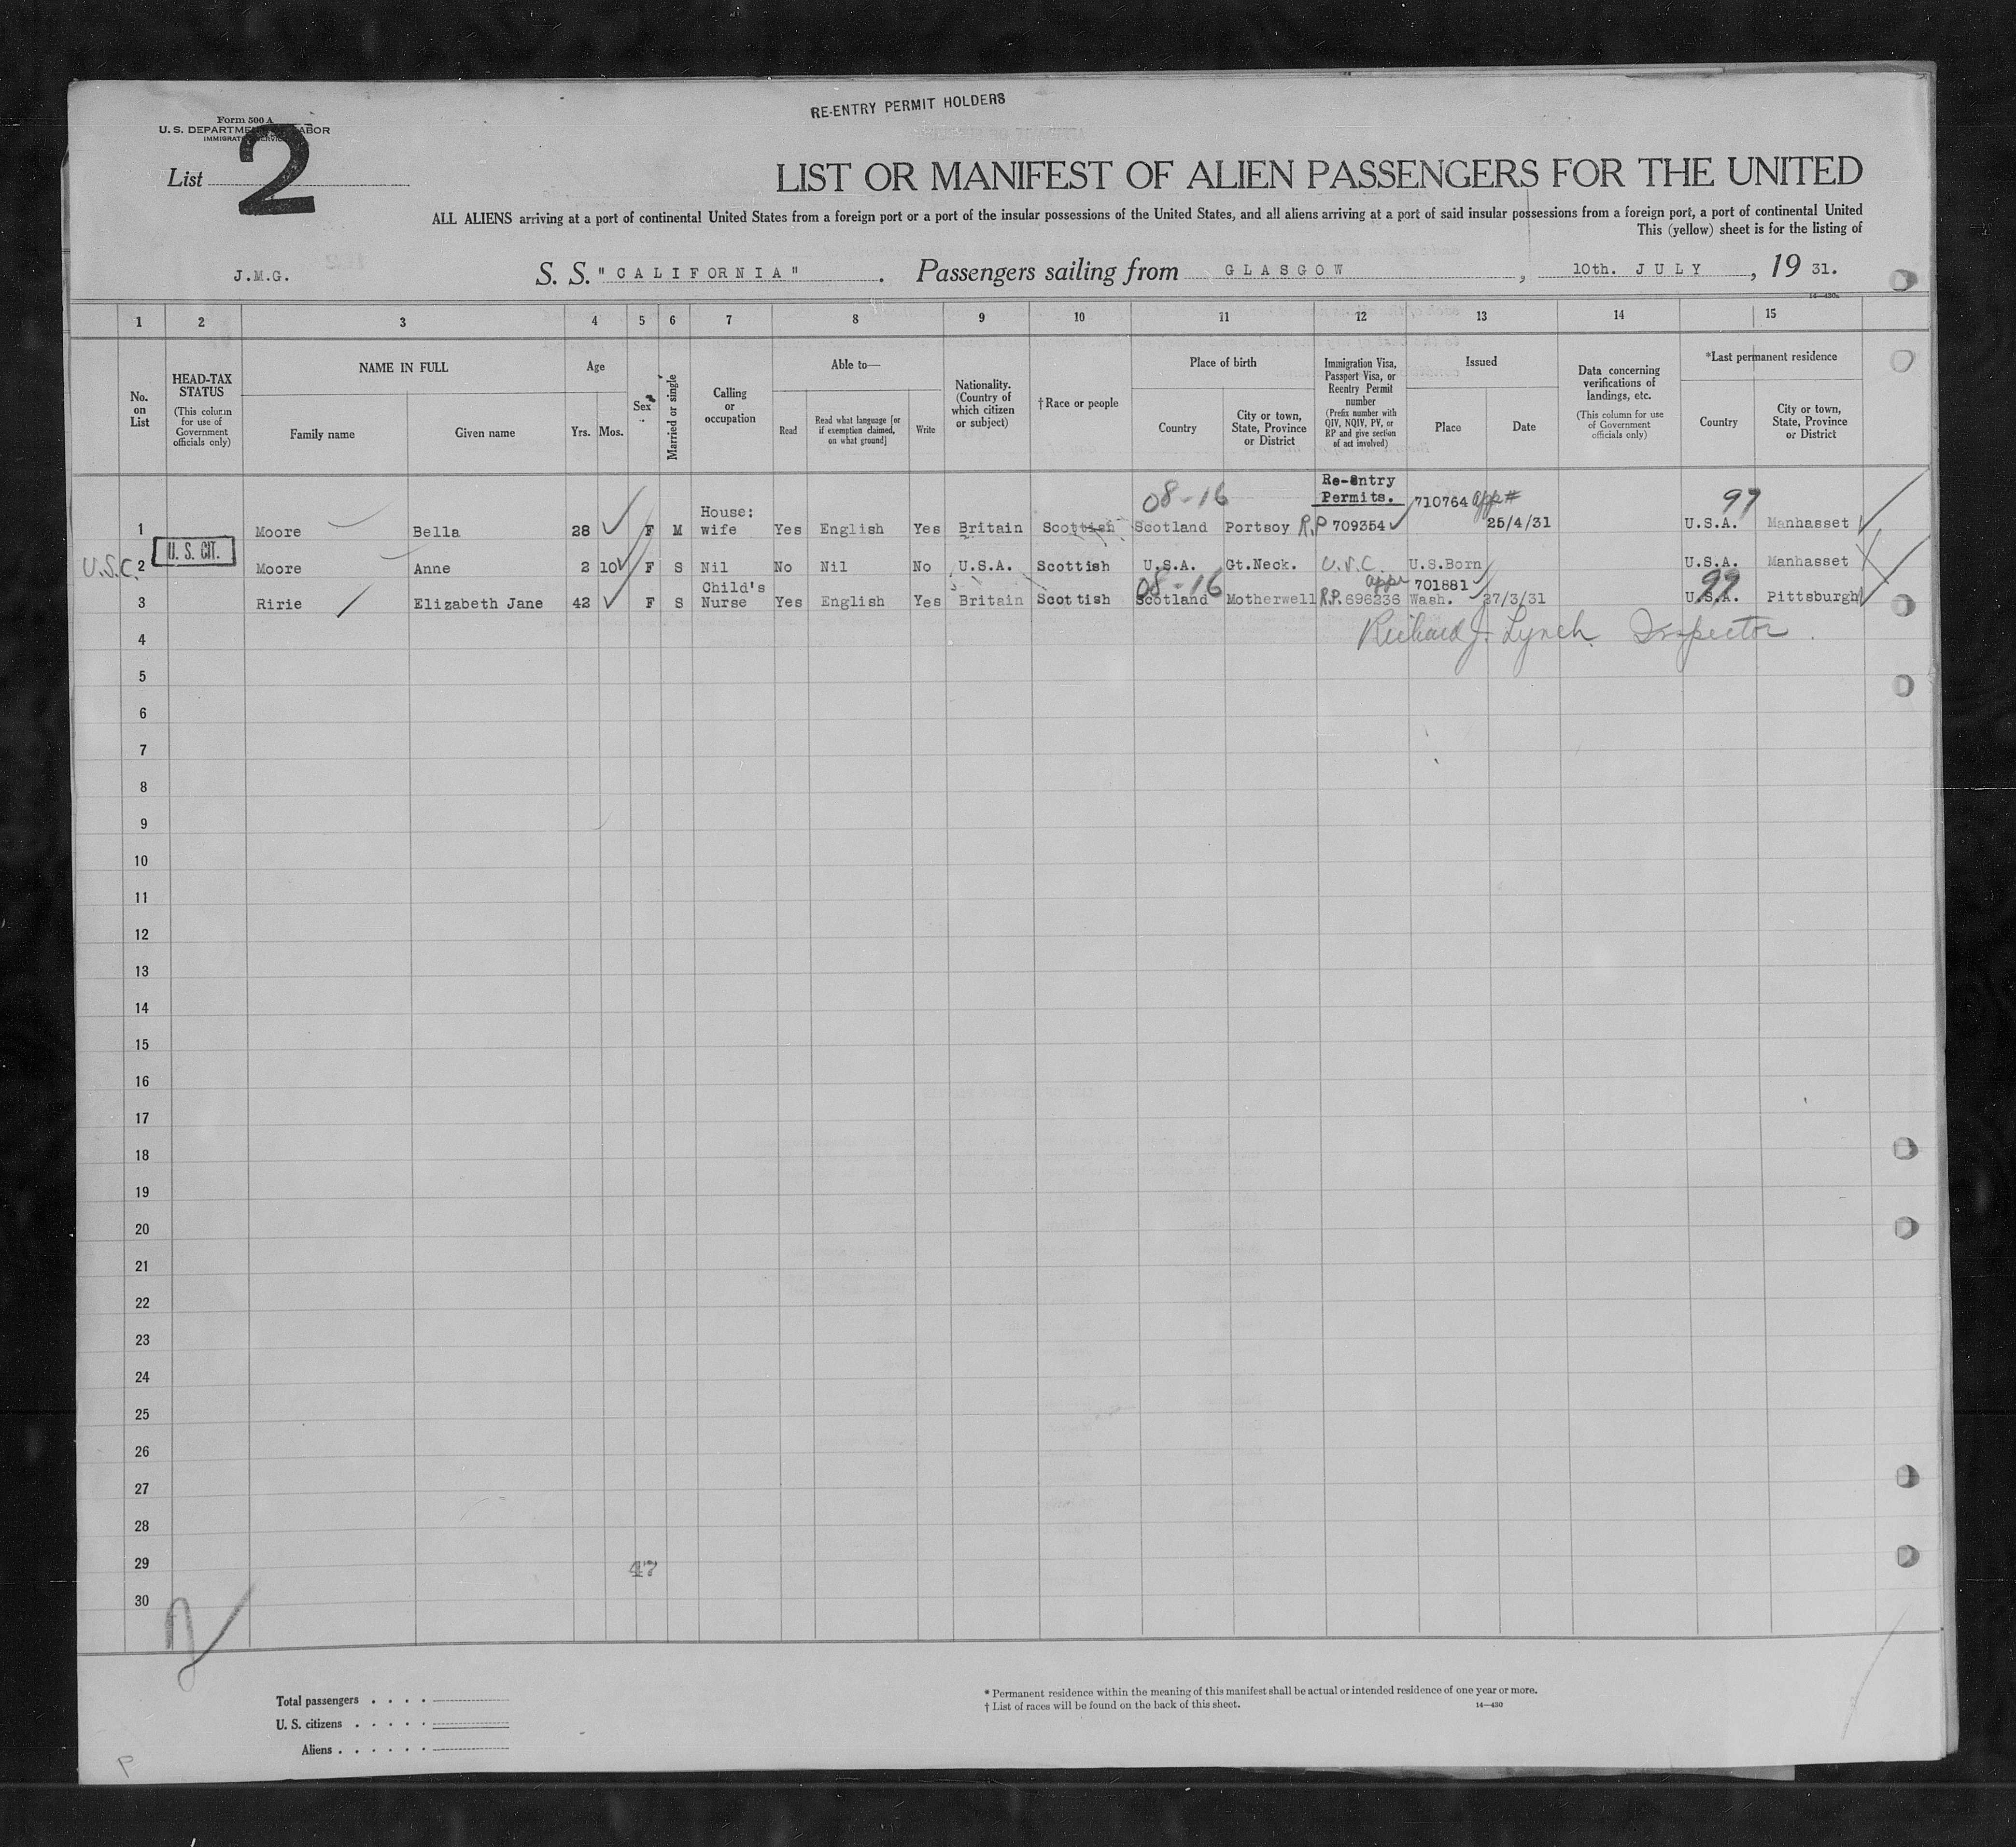 RE-ENTRY PERMIT HOLDERS
Form 500 A
U. S. DEPARTMENT OF LABOR
IMMIGRATION SERVICE
List 2
LIST OR MANIFEST OF ALIEN PASSENGERS FOR THE UNITED
ALL ALIENS arriving at a port of continental United States from a foreign port or a port of the insular possessions of the United States, and all aliens arriving at a port of said insular possessions from a foreign port, a port of continental United
This (yellow) sheet is for the listing of
J.M.G. S. S. "CALIFORNIA" . Passengers sailing from GLASGOW , 10th. JULY , 19 31.
14—430a
1 2 3 4 5 6 7 8 9 10 11 12 13 14 15
No. on List
HEAD-TAX STATUS (This column for use of Government officials only)
NAME IN FULL
Family name Given name
Age
Yrs. Mos.
Sex
Married or single
Calling or occupation
Able to—
Read Read what language [or if exemption claimed, on what ground] Write
Nationality. (Country of which citizen or subject)
†Race or people
Place of birth
Country City or town, State, Province or District
Immigration Visa, Passport Visa, or Reentry Permit number (Prefix number with QIV, NQIV, PV, or RP and give section of act involved)
Issued
Place Date
Data concerning verifications of landings, etc. (This column for use of Government officials only)
*Last permanent residence
Country City or town, State, Province or District
Re-entry Permits.
08-16 710764 app# 99
1 Moore Bella 28 F M House: wife Yes English Yes Britain Scottish Scotland Portsoy R.P 709354 25/4/31 U.S.A. Manhasset
U. S. CIT.
U.S.C. 2 Moore Anne 2 10 F S Nil No Nil No U.S.A. Scottish U.S.A. Gt.Neck. U.S.C. U.S.Born U.S.A. Manhasset
08-16 app 701881 99
3 Ririe Elizabeth Jane 42 F S Child's Nurse Yes English Yes Britain Scottish Scotland Motherwell R.P. 696236 Wash. 27/3/31 U.S.A. Pittsburgh
Richard J. Lynch Inspector.
4
5
6
7
8
9
10
11
12
13
14
15
16
17
18
19
20
21
22
23
24
25
26
27
28
29 47
30
Total passengers . . . .
U. S. citizens . . . . .
Aliens . . . . . .
* Permanent residence within the meaning of this manifest shall be actual or intended residence of one year or more.
† List of races will be found on the back of this sheet. 14—430
P